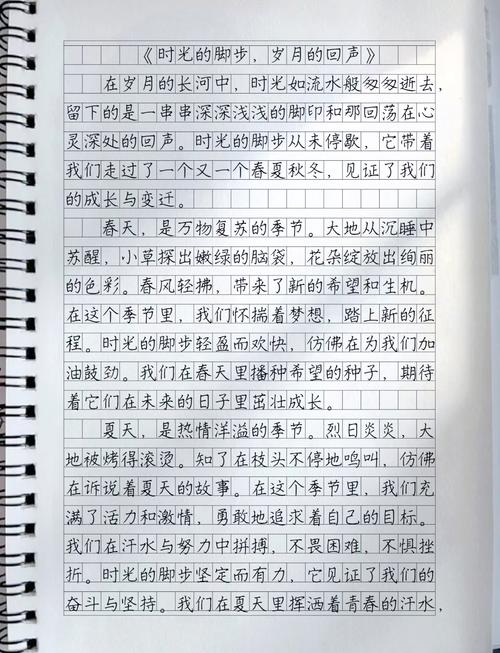 《时光的脚步，岁月的回声》
在岁月的长河中，时光如流水般匆匆逝去，
留下的是一串串深深浅浅的脚印和那回荡在心
灵深处的回声。时光的脚步从未停歇，它带着
我们走过了一个又一个春夏秋冬，见证了我们
的成长与变迁。
春天，是万物复苏的季节。大地从沉睡中
苏醒，小草探出嫩绿的脑袋，花朵绽放出绚丽
的色彩。春风轻拂，带来了新的希望和生机。
在这个季节里，我们怀揣着梦想，踏上新的征
程。时光的脚步轻盈而欢快，仿佛在为我们加
油鼓劲。我们在春天里播种希望的种子，期待
着它们在未来的日子里茁壮成长。
夏天，是热情洋溢的季节。烈日炎炎，大
地被烤得滚烫。知了在枝头不停地鸣叫，仿佛
在诉说着夏天的故事。在这个季节里，我们充
满了活力和激情，勇敢地追求着自己的目标。
我们在汗水与努力中拼搏，不畏困难，不惧挫
折。时光的脚步坚定而有力，它见证了我们的
奋斗与坚持。我们在夏天里挥洒着青春的汗水，